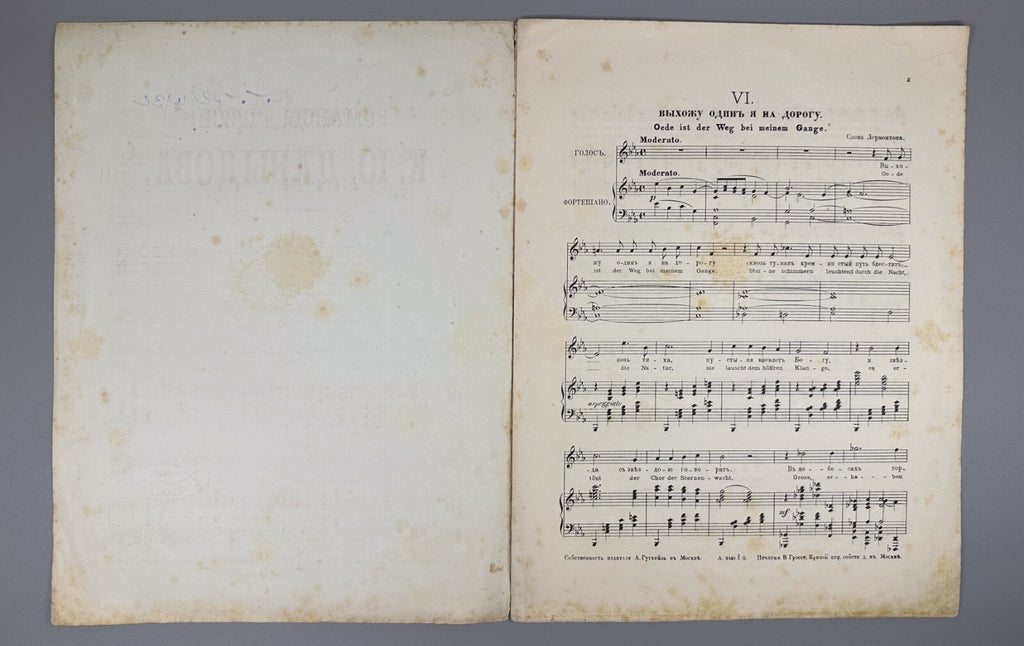 3
VI.
ВЫХОЖУ ОДИНЪ Я НА ДОРОГУ.
Oede ist der Weg bei meinem Gange.
Слова Лермонтова.
Moderato.
ГОЛОСЪ.
Вы-хо-
Oe-de
Moderato.
ФОРТЕПІАНО.
p
жу о-динъ я на до-ро-гу сквозь ту-манъ крем-ни-стый путь блес-титъ;
ist der Weg bei meinem Gange, Stei-ne schimmern leuchtend durch die Nacht,
ночь ти-ха, пу-сты-ня внемлетъ Бо-гу, и звѣз-
die Na-tur, sie lauscht dem höh'ren Klan-ge, es er-
arpeggiato
да съ звѣз-до-ю го-во-ритъ. Въ не-бе-сахъ тор-
tönt der Chor der Sternen-wacht. Gross, er-ha-ben
mf
Собственность издателя А. Гутхейль въ Москвѣ. Печатня В. Гроссе, въ Москвѣ.